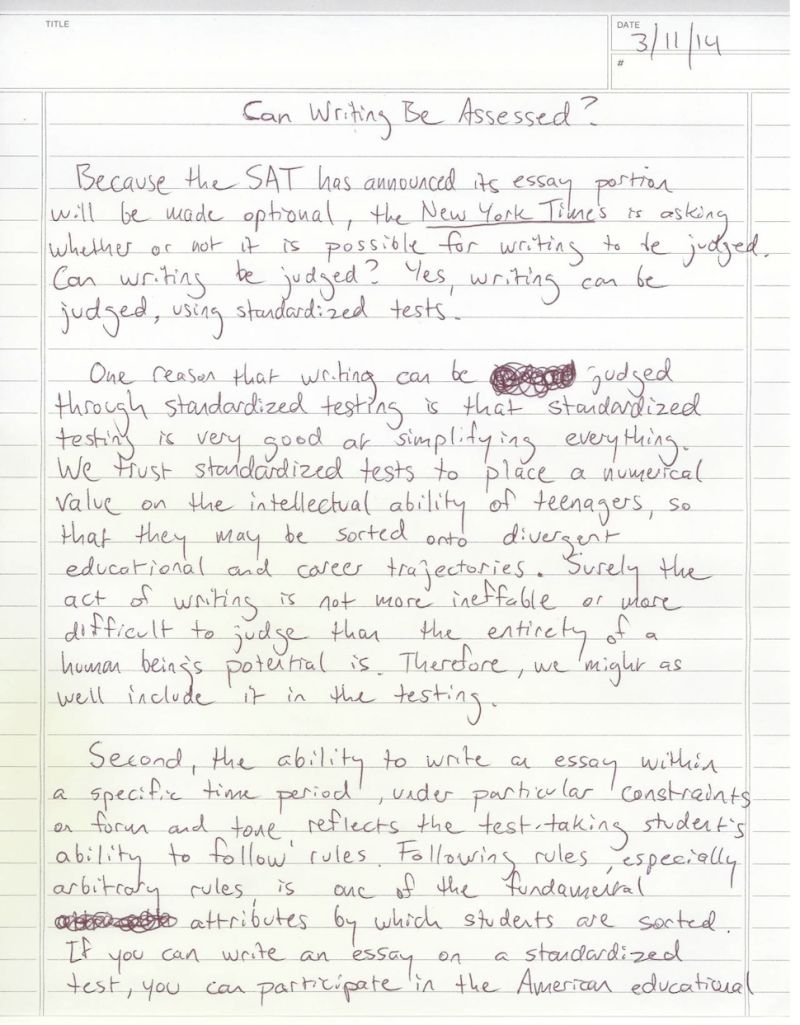 TITLE
DATE
3/11/14
#
Can Writing Be Assessed?
Because the SAT has announced its essay portion
will be made optional, the New York Times is asking
whether or not it is possible for writing to be judged.
Can writing be judged? Yes, writing can be
judged, using standardized tests.
One reason that writing can be judged
through standardized testing is that standardized
testing is very good at simplifying everything.
We trust standardized tests to place a numerical
value on the intellectual ability of teenagers, so
that they may be sorted onto divergent
educational and career trajectories. Surely the
act of writing is not more ineffable or more
difficult to judge than the entirety of a
human being's potential is. Therefore, we might as
well include it in the testing.
Second, the ability to write an essay within
a specific time period, under particular constraints
on form and tone reflects the test-taking student's
ability to follow rules. Following rules, especially
arbitrary rules, is one of the fundamental
attributes by which students are sorted.
If you can write an essay on a standardized
test, you can participate in the American educational